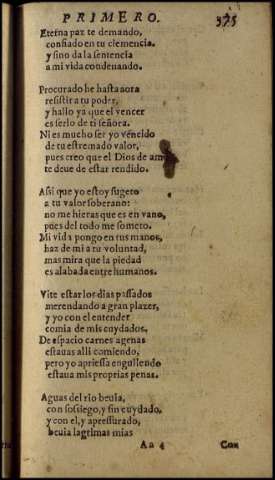 PRIMERO. 375
Eterna paz te demando,
confiado en tu clemencia.
y sino da la sentencia
a mi vida condenando.
Procurado he hasta aora
resistir a tu poder,
y hallo ya que el vencer
es serlo de ti señora.
Ni es mucho ser yo vécido
de tu estremado valor,
pues creo que el Dios de am
te deue de estar rendido.
Assi que yo estoy sugeto
a tu valor soberano:
no me hieras que es en vano,
pues del todo me someto.
Mi vida pongo en tus manos,
haz de mi a tu voluntad,
mas mira que la piedad
es alabada entre humanos.
Vite estar los dias passados
merendando a gran plazer,
y yo con el entender
comia de mis cuydados.
De espacio carnes agenas
estauas alli comiendo,
pero yo apriessa engullendo
estaua mis proprias penas.
Aguas del rio beuia,
con sossiego, y sin cuydado,
y con el, y apressurado,
beuia lagrimas mias
Aa 4 Con